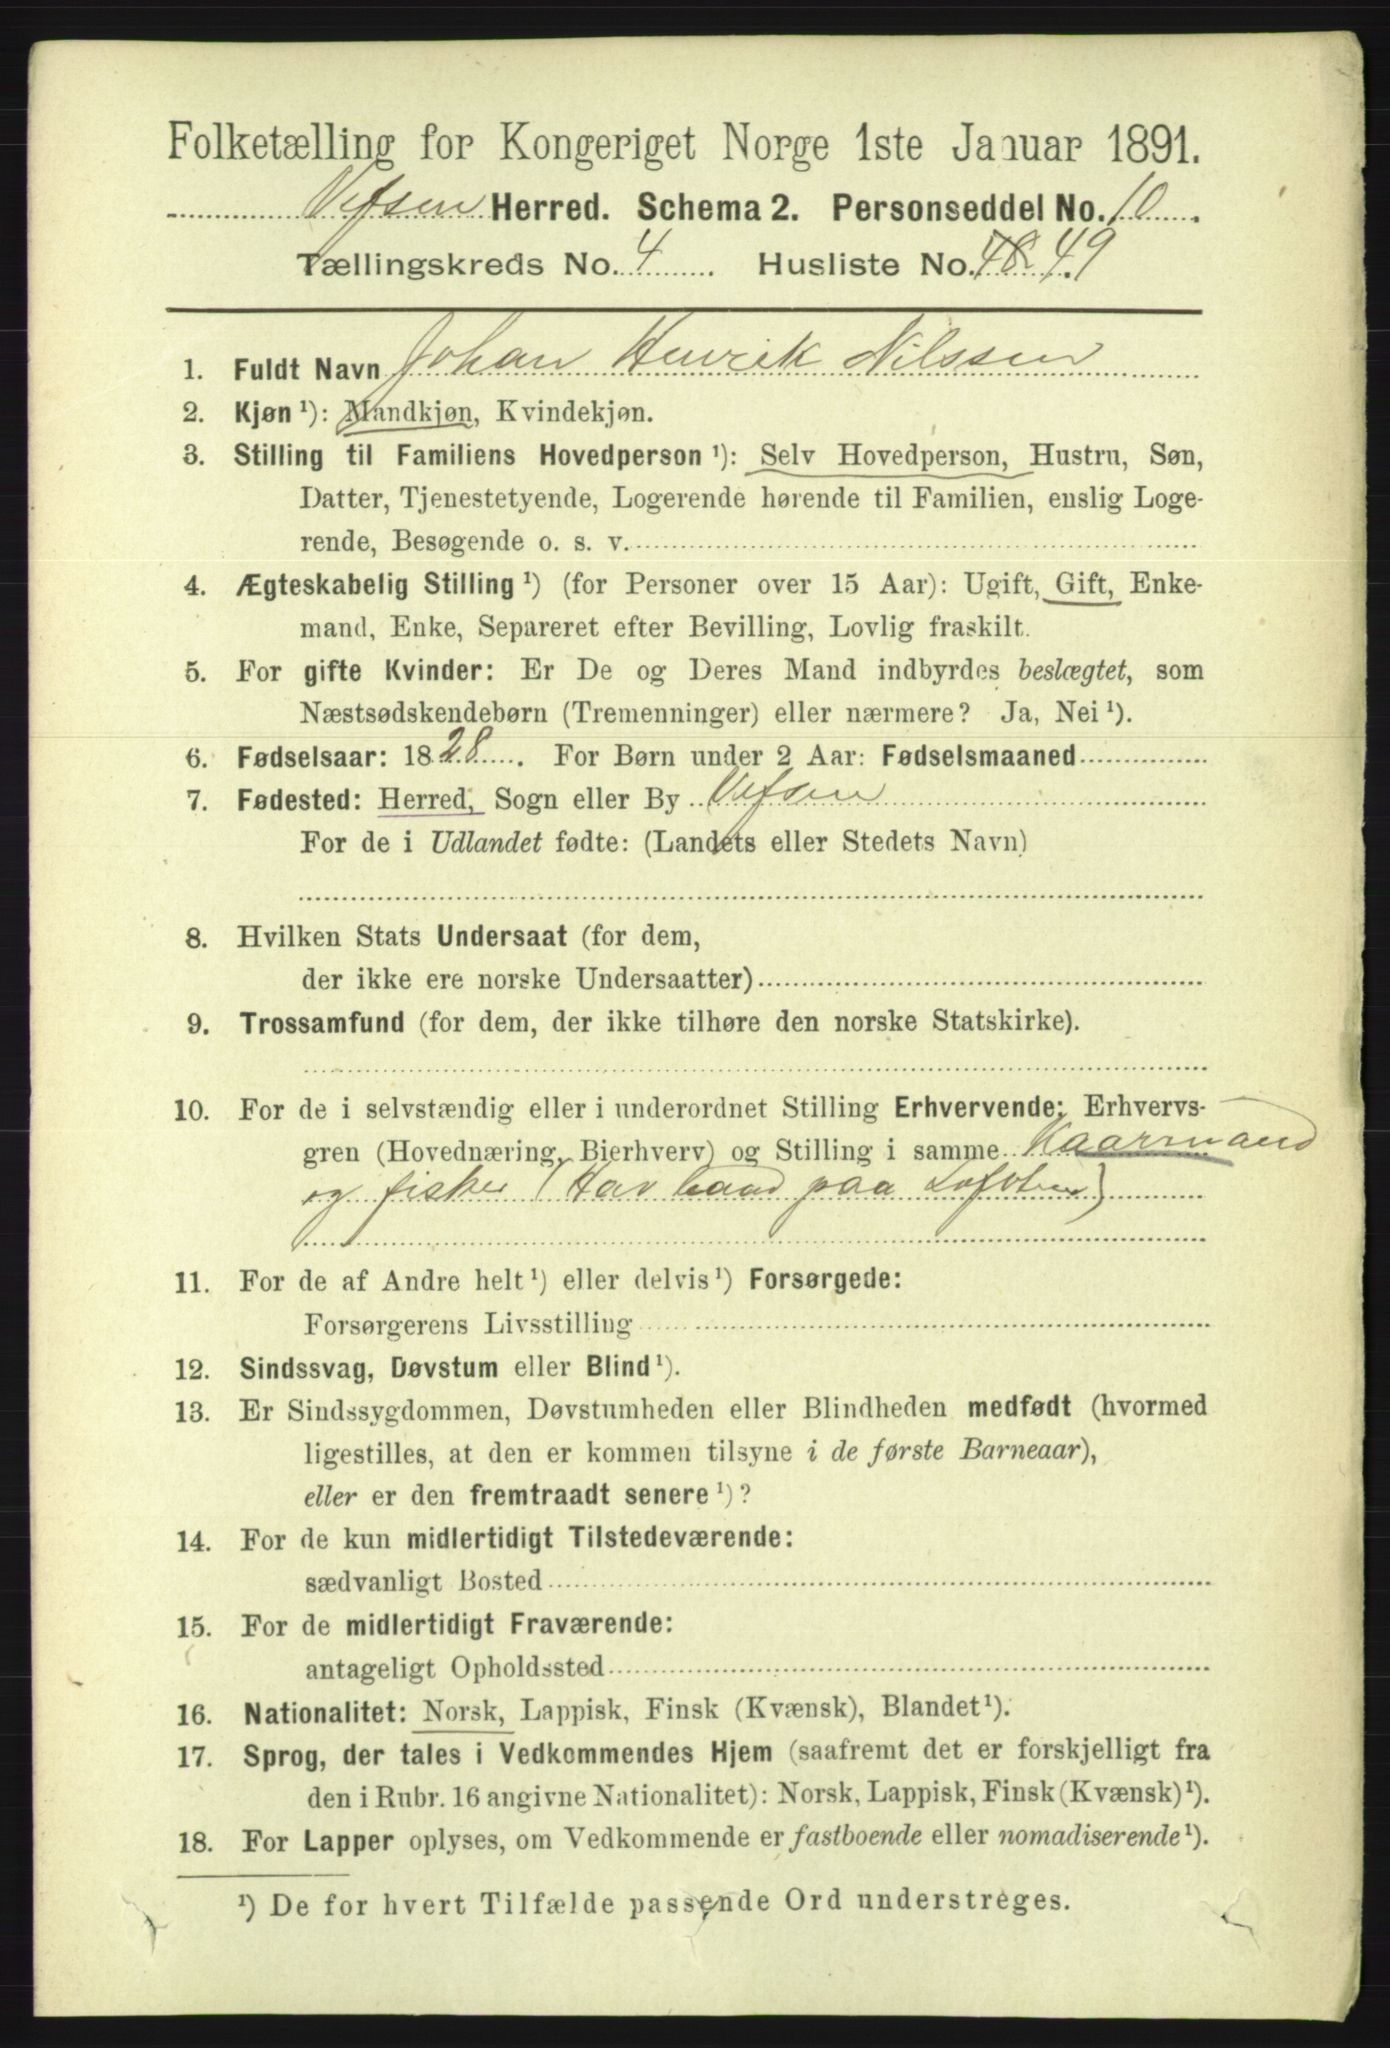 Folketælling for Kongeriget Norge 1ste Januar 1891.
Vefsen Herred. Schema 2. Personseddel No. 10.
Tællingskreds No. 4. Husliste No. 48 49
1. Fuldt Navn Johan Henrik Nilssen
2. Kjøn ¹): Mandkjøn, Kvindekjøn.
3. Stilling til Familiens Hovedperson ¹): Selv Hovedperson, Hustru, Søn,
Datter, Tjenestetyende, Logerende hørende til Familien, enslig Loge-
rende, Besøgende o. s. v.
4. Ægteskabelig Stilling ¹) (for Personer over 15 Aar): Ugift, Gift, Enke-
mand, Enke, Separeret efter Bevilling, Lovlig fraskilt.
5. For gifte Kvinder: Er De og Deres Mand indbyrdes beslægtet, som
Næstsødskendebørn (Tremenninger) eller nærmere? Ja, Nei ¹).
6. Fødselsaar: 1828. For Børn under 2 Aar: Fødselsmaaned
7. Fødested: Herred, Sogn eller By Vefsen
For de i Udlandet fødte: (Landets eller Stedets Navn)
8. Hvilken Stats Undersaat (for dem,
der ikke ere norske Undersaatter)
9. Trossamfund (for dem, der ikke tilhøre den norske Statskirke).
10. For de i selvstændig eller i underordnet Stilling Erhvervende: Erhvervs-
gren (Hovednæring, Bierhverv) og Stilling i samme Kaarmand
og fisker (Har baad paa Lofoten)
11. For de af Andre helt ¹) eller delvis ¹) Forsørgede:
Forsørgerens Livsstilling
12. Sindssvag, Døvstum eller Blind ¹).
13. Er Sindssygdommen, Døvstumheden eller Blindheden medfødt (hvormed
ligestilles, at den er kommen tilsyne i de første Barneaar),
eller er den fremtraadt senere ¹)?
14. For de kun midlertidigt Tilstedeværende:
sædvanligt Bosted
15. For de midlertidigt Fraværende:
antageligt Opholdssted
16. Nationalitet: Norsk, Lappisk, Finsk (Kvænsk), Blandet ¹).
17. Sprog, der tales i Vedkommendes Hjem (saafremt det er forskjelligt fra
den i Rubr. 16 angivne Nationalitet): Norsk, Lappisk, Finsk (Kvænsk) ¹).
18. For Lapper oplyses, om Vedkommende er fastboende eller nomadiserende ¹).
¹) De for hvert Tilfælde passende Ord understreges.